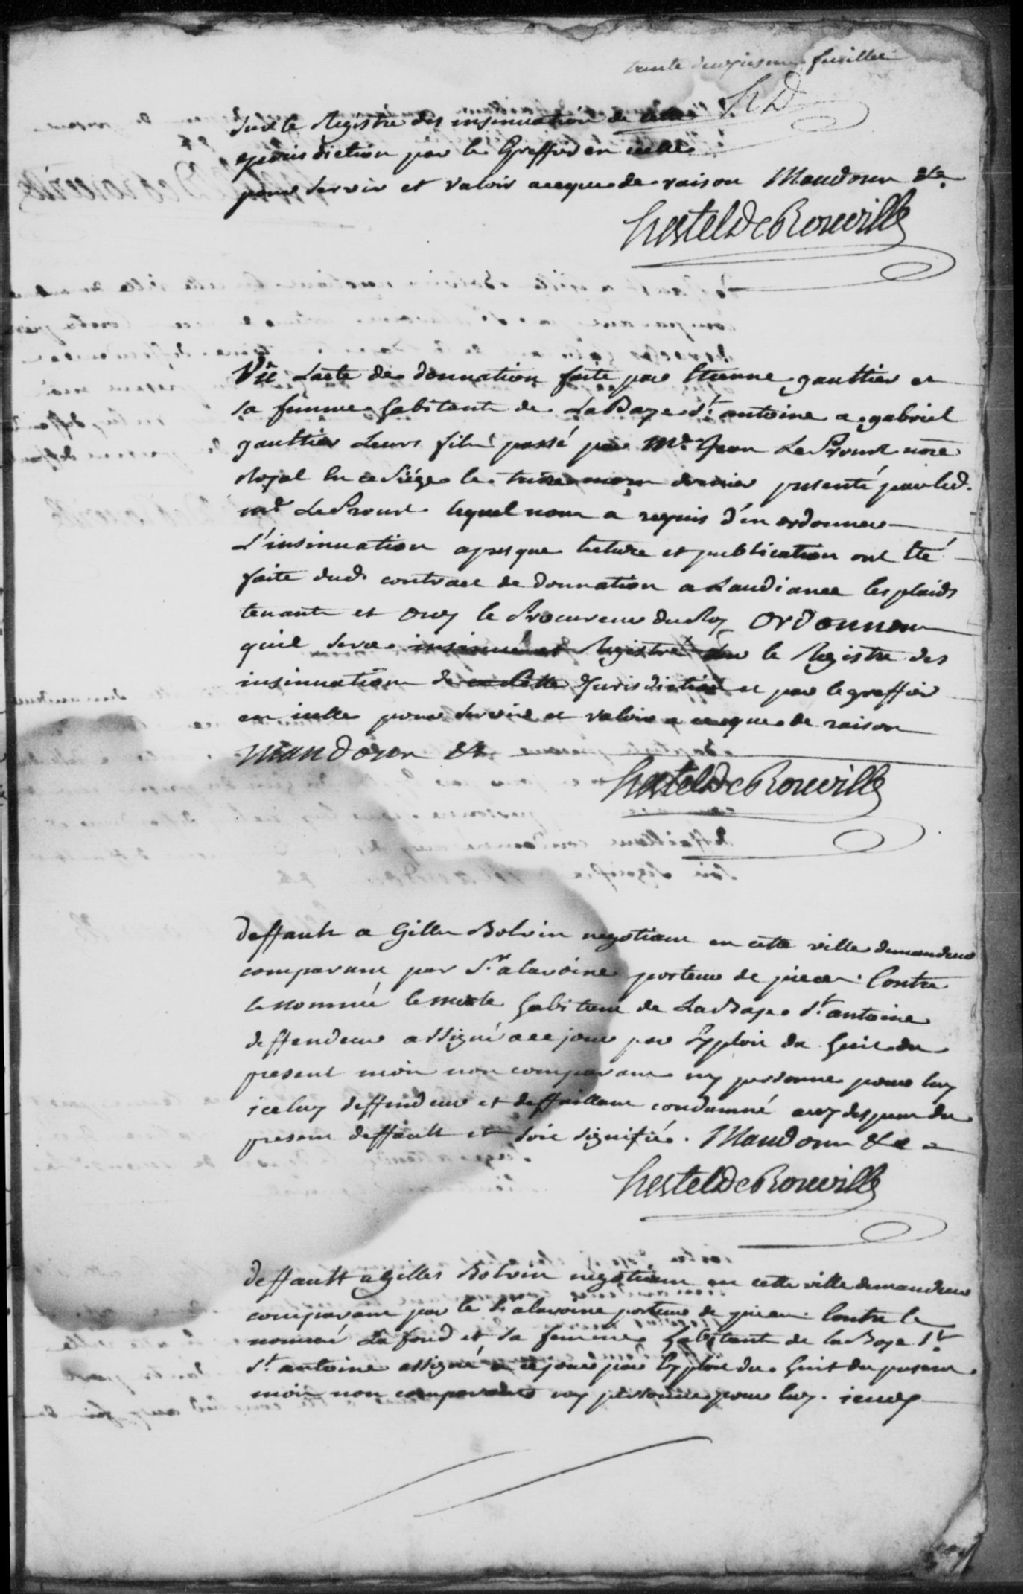 trente deuxiesme feuillet
HD
Sur le Registre des insinuations de cette
Jurisdiction par le Greffier en icelle
pour servir et valoir aceque de raison Mandons &c.
Hertel De Rouville
Vû Lacte de donnation faite par Etienne gauttier et
sa femme habitants de La Baye St. antoine a gabriel
gauttier Leurs fils passé par Me. Jean Le Proust nore
Royal En ce Siége le dernier presenté par led.
me. Le Proust lequel nous a requis d'en ordonner
L'insinuation apres que lecture et publication ont Eté
faite dud. contract de donnation a Laudiance les plaids
tenants et ouy le Procureur du Roy Ordonnons
quil sera insinué et Registré sur le Registre des
insinuations de cette Jurisdiction et par le greffier
en icelle pour servir et valoir a ceque de raison
Mandons &c
Hertel De Rouville
deffault a Gilles Bolvin negotiant en cette ville demandeur
comparant par Sr. alavoine porteur de pieces Contre
le nommé habitant de La Baye St. antoine
deffendeur assigné a ce jour par Exploit du huit du
present mois non comparant ny personne pour luy
iceluy deffendeur et deffaillant condamné aux despens du
present deffault et soit signifié. Mandons &c
Hertel De Rouville
deffault a gilles Bolvin negotiant en cette ville demandeur
comparant par le Sr. alavoine porteur de pieces Contre le
nommé La fond et sa femme habitants de la Baye St.
St. antoine assigné a ce jour par Exploit du huit du present
mois non comparants ny personne pour luy. iceux